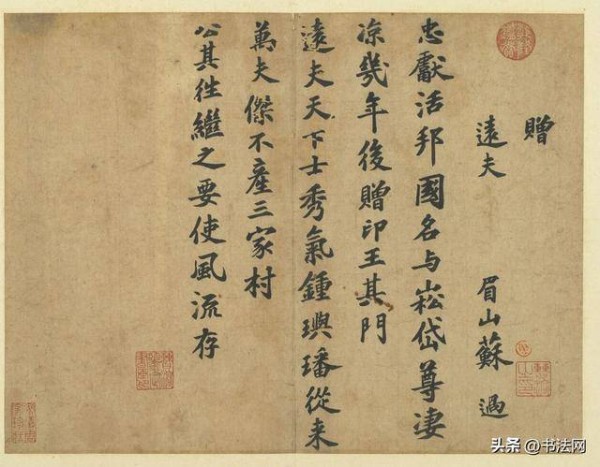 贈
遠夫 眉山蘇過
忠獻活邦國名与崧岱尊淒
凉幾年後贈印王其門
遠夫天下士秀氣鍾璵璠從来
萬夫傑不產三家村
公其徃繼之要使風流存
头条 @书法网